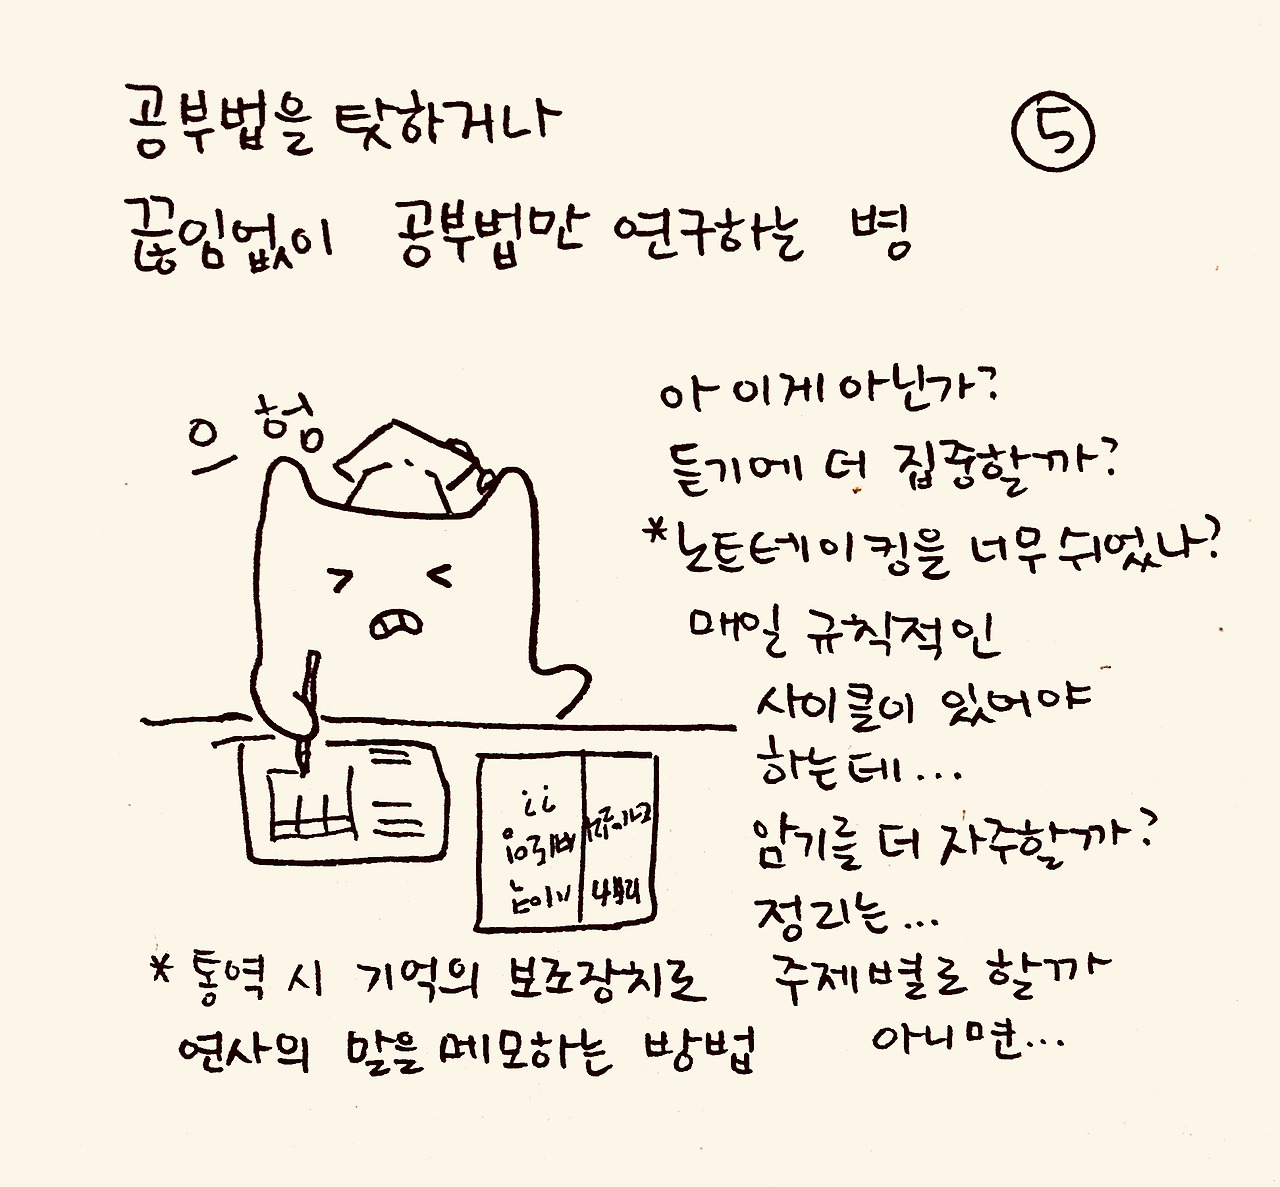 공부법을 탓하거나
⑤
끊임없이 공부법만 연구하는 병
으 헝
아 이게 아닌가?
듣기에 더 집중할까?
*노트테이킹을 너무 쉬었나?
매일 규칙적인
사이클이 있어야
하는데...
암기를 더 자주할까?
정리는...
주제별로 할까
아니면...
*통역 시 기억의 보조장치로
연사의 말을 메모하는 방법